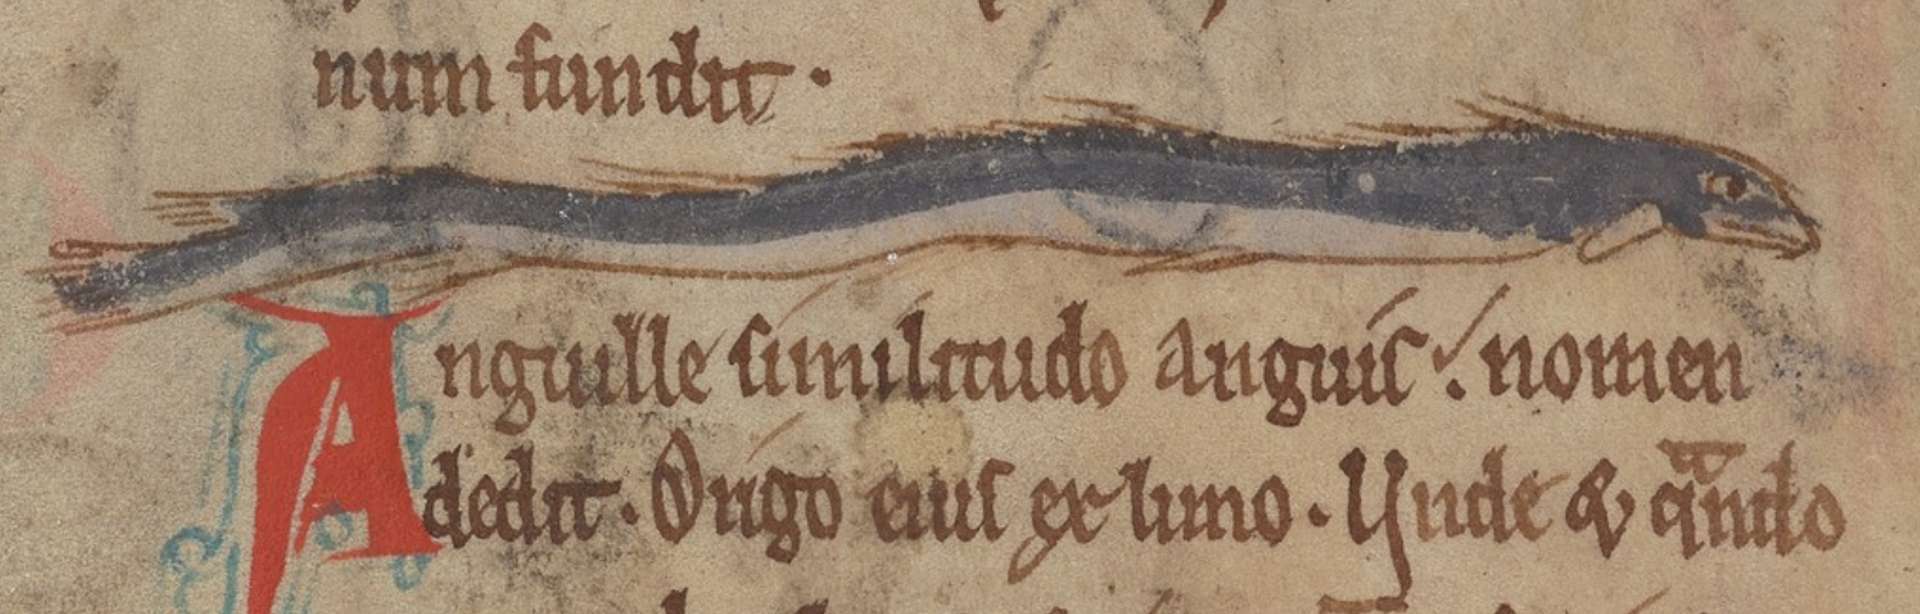 num fundit.
Anguille similitudo anguis. nomen
dedit. Origo eius ex limo. Unde & qͣndo